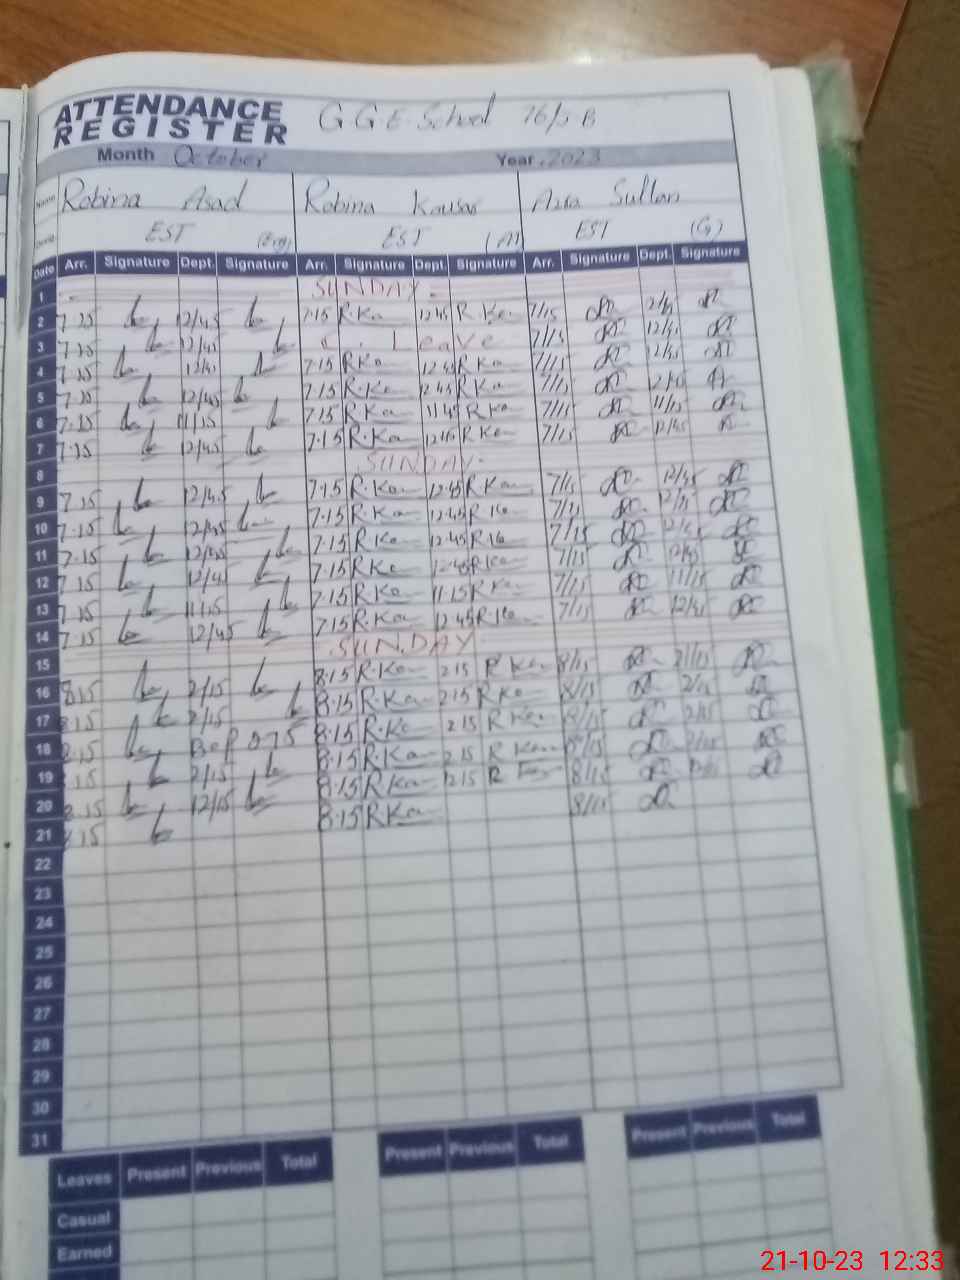 ATTENDANCE REGISTER G G E School 76/5 B
Month October Year 2023
Name Robina Asad Robina Kousar Azra Sultan
EST (Eng) EST (A) EST (G)
Date Arr. Signature Dept. Signature Arr. Signature Dept. Signature Arr. Signature Dept. Signature
1 SUNDAY
2 7.15 12/45 7.15 R.Ko 12.45 R.Ko 7/15 12/45
3 7.15 12/45 Leave 7/15 12/45
4 7.15 12/45 7.15 R Ko 12.45 R Ko 7/15 12/45
5 7.15 12/45 7.15 R.Ko 12.45 R Ko 7/15
6 7.15 11/15 7.15 R Ko 11.45 R Ko 7/15 11/15
7 7.15 12/45 7.15 R.Ko R Ko 7/15 12/45
8 SUNDAY
9 7.15 12/45 7.15 R.Ko 12.45 R Ko 7/15 12/45
10 7.15 12/45 7.15 R.Ko 12.45 R Ko 7/15
11 7.15 12/45 7.15 R Ko 12.45 R Ko 7/15
12 7.15 12/45 7.15 R Ko R Ko 7/15 12/45
13 7.15 11/15 7.15 R Ko 11.15 R Ko 7/15 11/15
14 7.15 12/45 7.15 R Ko 12.45 R.Ko 7/15 12/45
15 SUNDAY
16 8.15 2/15 8.15 R.Ko 2.15 R Ko 8/15
17 8.15 2/15 8.15 R.Ko 2.15 R Ko 8/15 2/15
18 8.15 8.15 R.Ko 2.15 R Ko 8/15 2/15
19 8.15 2/15 8.15 R Ko 2.15 R Ko 8/15
20 8.15 12/15 8.15 R Ko 12.15 R 8/15
21 8.15 8.15 R Ko 8/15
22
23
24
25
26
27
28
29
30
31
Leaves Present Previous Total Present Previous Total Present Previous Total
Casual
Earned
21-10-23 12:33